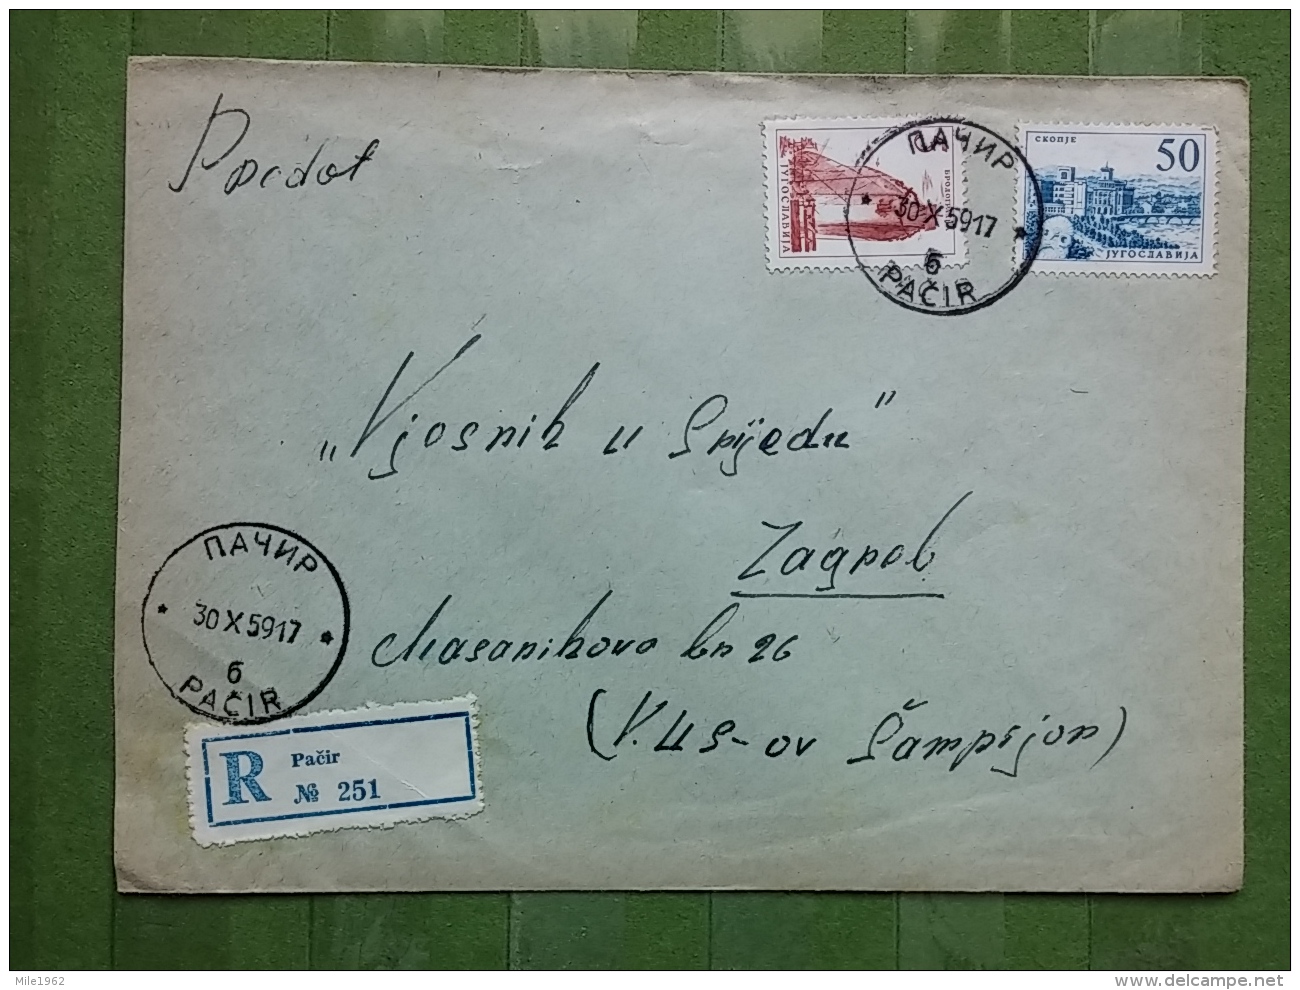 Pridot
ПАЧИР
30 X 59 17
б
PAČIR
ЈУГОСЛАВИЈА
СКОПЈЕ
50
ЈУГОСЛАВИЈА
„Vjesnik u Srijedu"
Zagreb
Masarikova br 26
(V.US-ov Šampijon)
ПАЧИР
30 X 59 17
б
PAČIR
R
Pačir
№ 251
Mile1962
www.delcampe.net